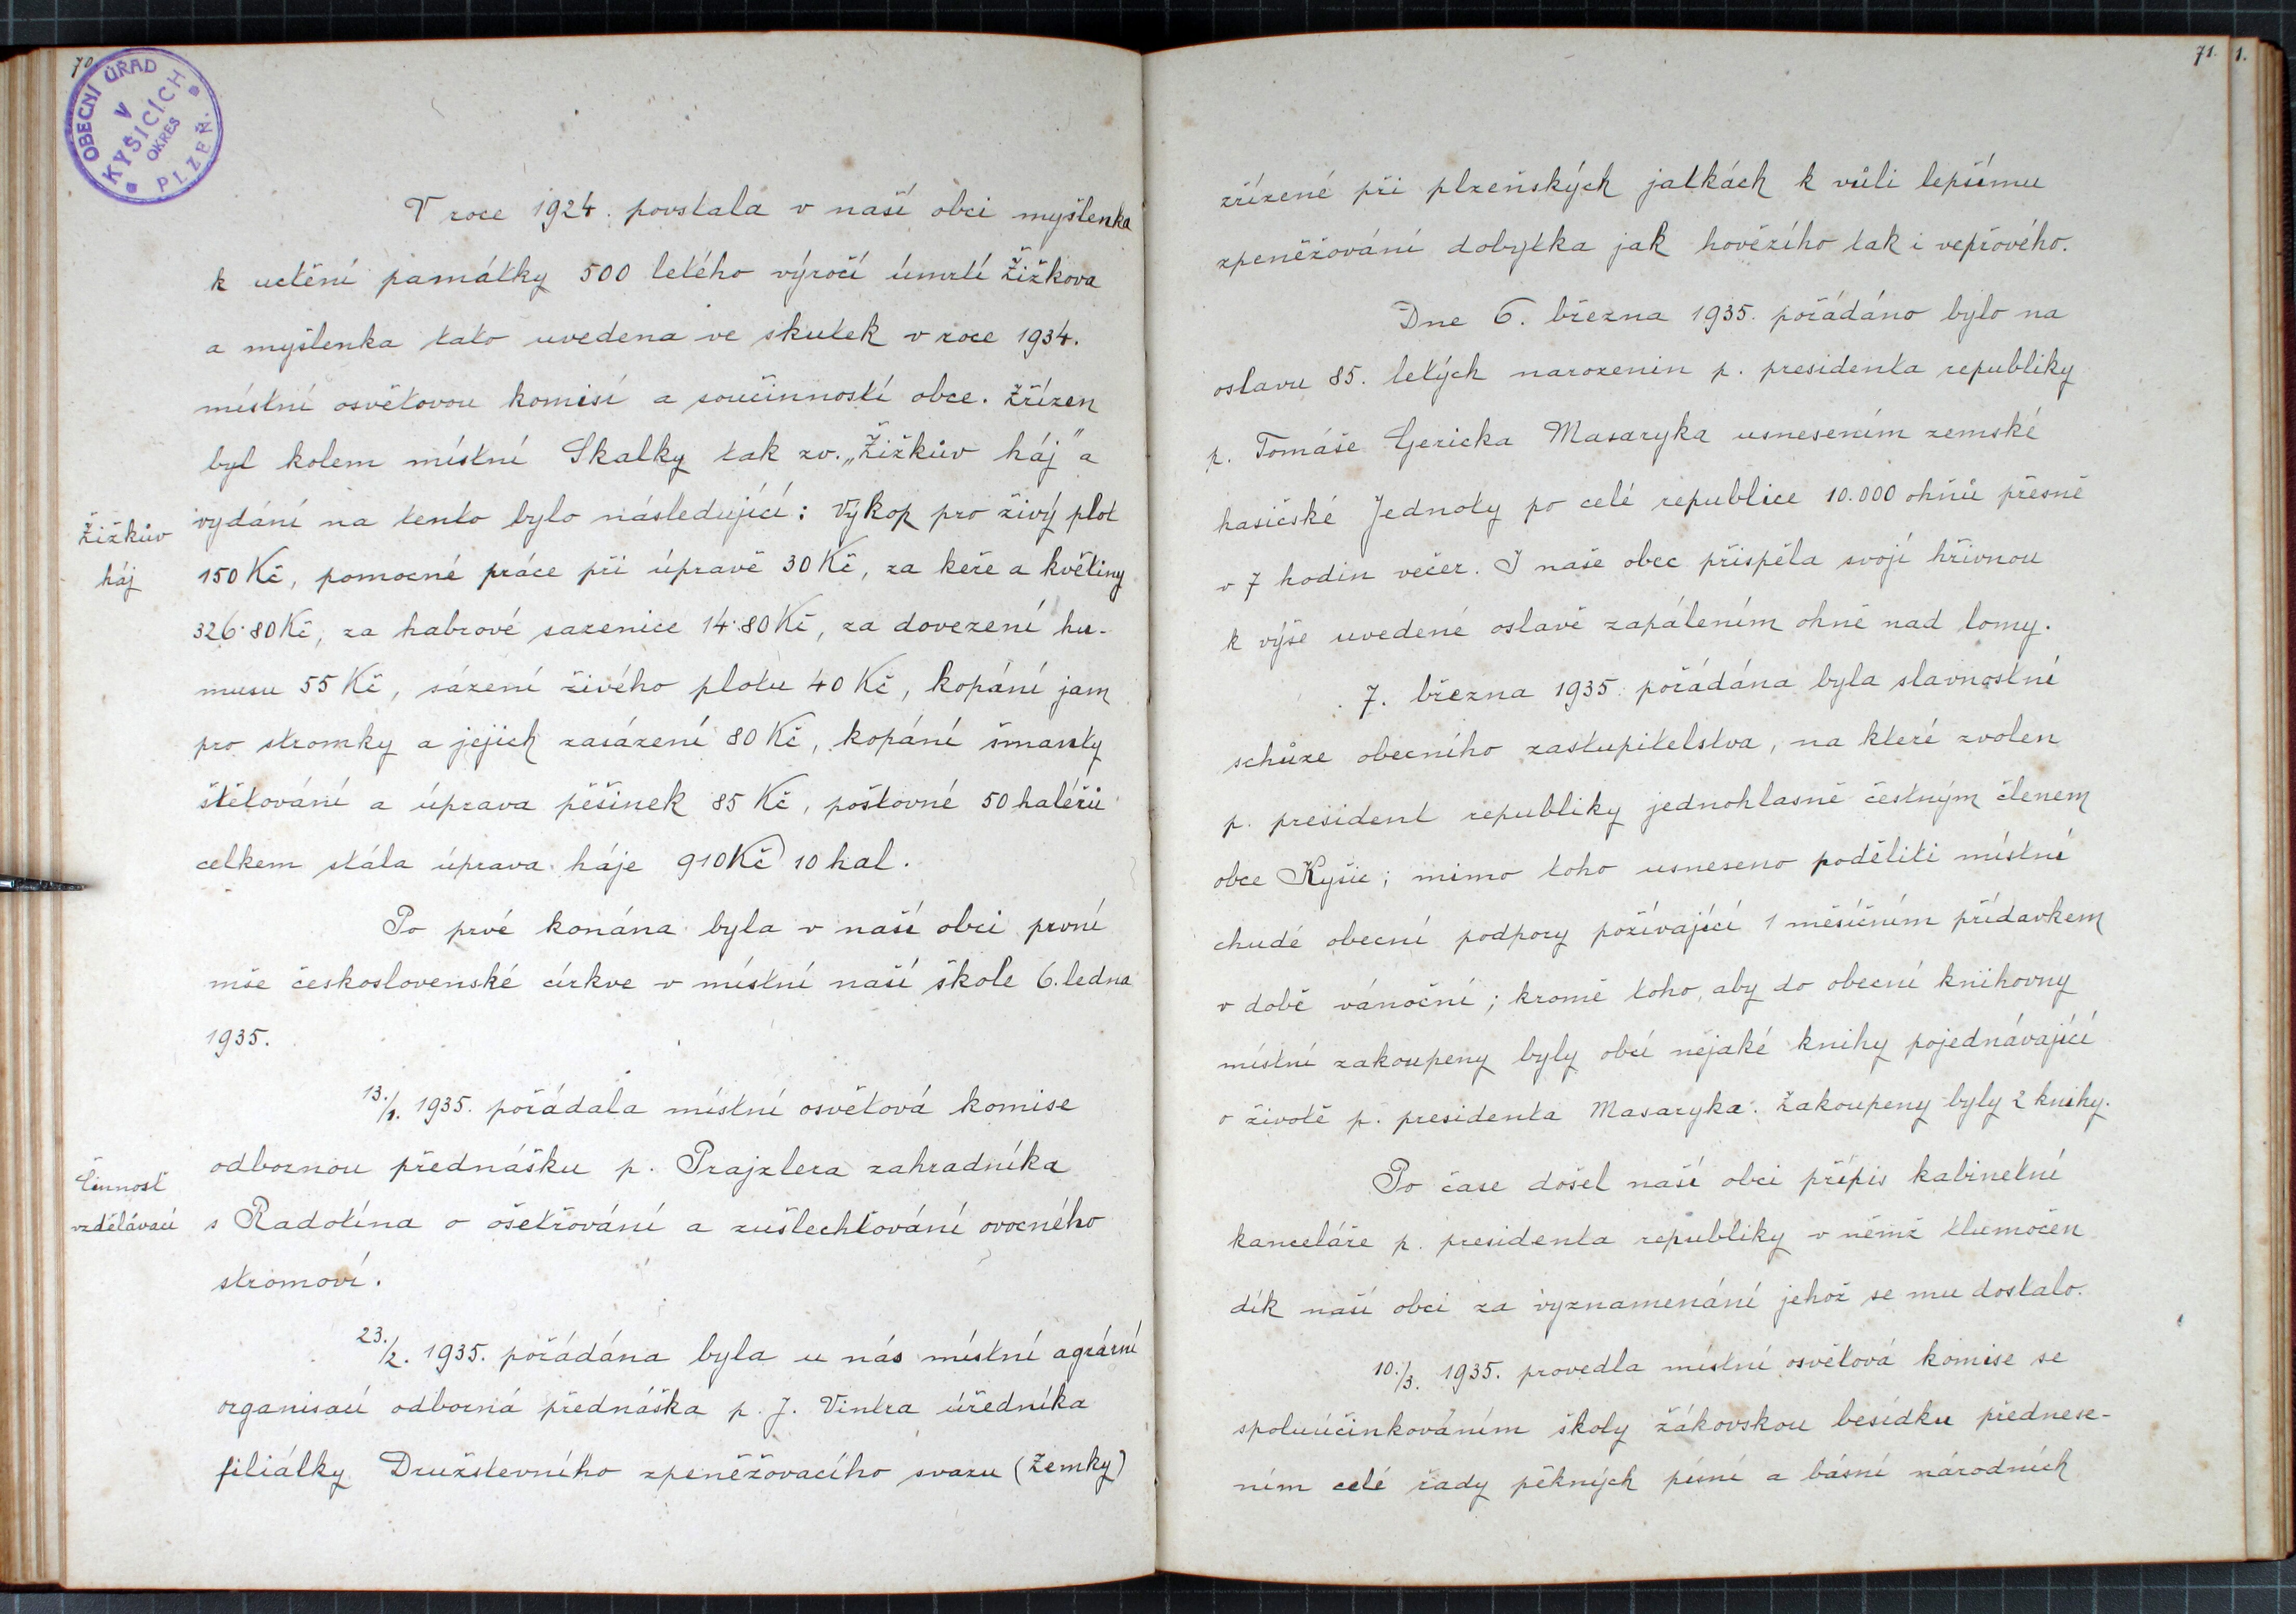 70.
OBECNÍ ÚŘAD
V
KYŠICÍCH
OKRES
PLZEŇ.
V roce 1924. povstala v naší obci myšlenka
k uctění památky 500 letého výročí úmrtí Žižkova
a myšlenka tato uvedena ve skutek v roce 1934.
místní osvětovou komisí a součinností obce. Zřízen
byl kolem místní Skalky tak zv. „Žižkův háj" a
Žižkův
háj
vydání na tento bylo následující: Výkop pro živý plot
150 Kč, pomocné práce při úpravě 30 Kč, za keře a květiny
326·80 Kč, za habrové sazenice 14·80 Kč, za dovezení hu-
musu 55 Kč, sázení živého plotu 40 Kč, kopání jam
pro stromky a jejich zasázení 80 Kč, kopání
štětování a úprava pěšinek 85 Kč, poštovné 50 haléřů
celkem stála úprava háje 910 Kč 10 hal.
Po prvé konána byla v naší obci první
mše československé církve v místní naší škole 6. ledna
1935.
13./1. 1935. pořádala místní osvětová komise
odbornou přednášku p. Prajzlera zahradníka
Činnost
vzdělávací
s Radotína o ošetřování a zušlechťování ovocného
stromoví.
23./2. 1935. pořádána byla u nás místní agrární
organisací odborná přednáška p. J. Vintra úředníka
filiálky Družstevního zpeněžovacího svazu (Zemky)
71.
1.
zřízené při plzeňských jatkách k vůli lepšímu
zpeněžování dobytka jak hovězího tak i vepřového.
Dne 6. března 1935. pořádáno bylo na
oslavu 85. letých narozenin p. presidenta republiky
p. Tomáše Gericka Masaryka usnesením zemské
hasičské Jednoty po celé republice 10.000 ohňů přesně
v 7 hodin večer. I naše obec přispěla svojí hřivnou
k výše uvedené oslavě zapálením ohně nad lomy.
7. března 1935. pořádána byla slavnostní
schůze obecního zastupitelstva, na které zvolen
p. president republiky jednohlasně čestným členem
obce Kyšic; mimo toho usneseno poděliti místní
chudé obecní podpory požívající 1 měsíčním přídavkem
v době vánoční; kromě toho, aby do obecní knihovny
místní zakoupeny byly obcí nějaké knihy pojednávající
o životě p. presidenta Masaryka. Zakoupeny byly 2 knihy.
Po čase došel naší obci přípis kabinetní
kanceláře p. presidenta republiky v němž tlumočen
dík naší obci za vyznamenání jehož se mu dostalo.
10./3. 1935. provedla místní osvětová komise se
spoluúčinkováním školy žákovskou besídku přednese-
ním celé řady pěkných písní a básní národních